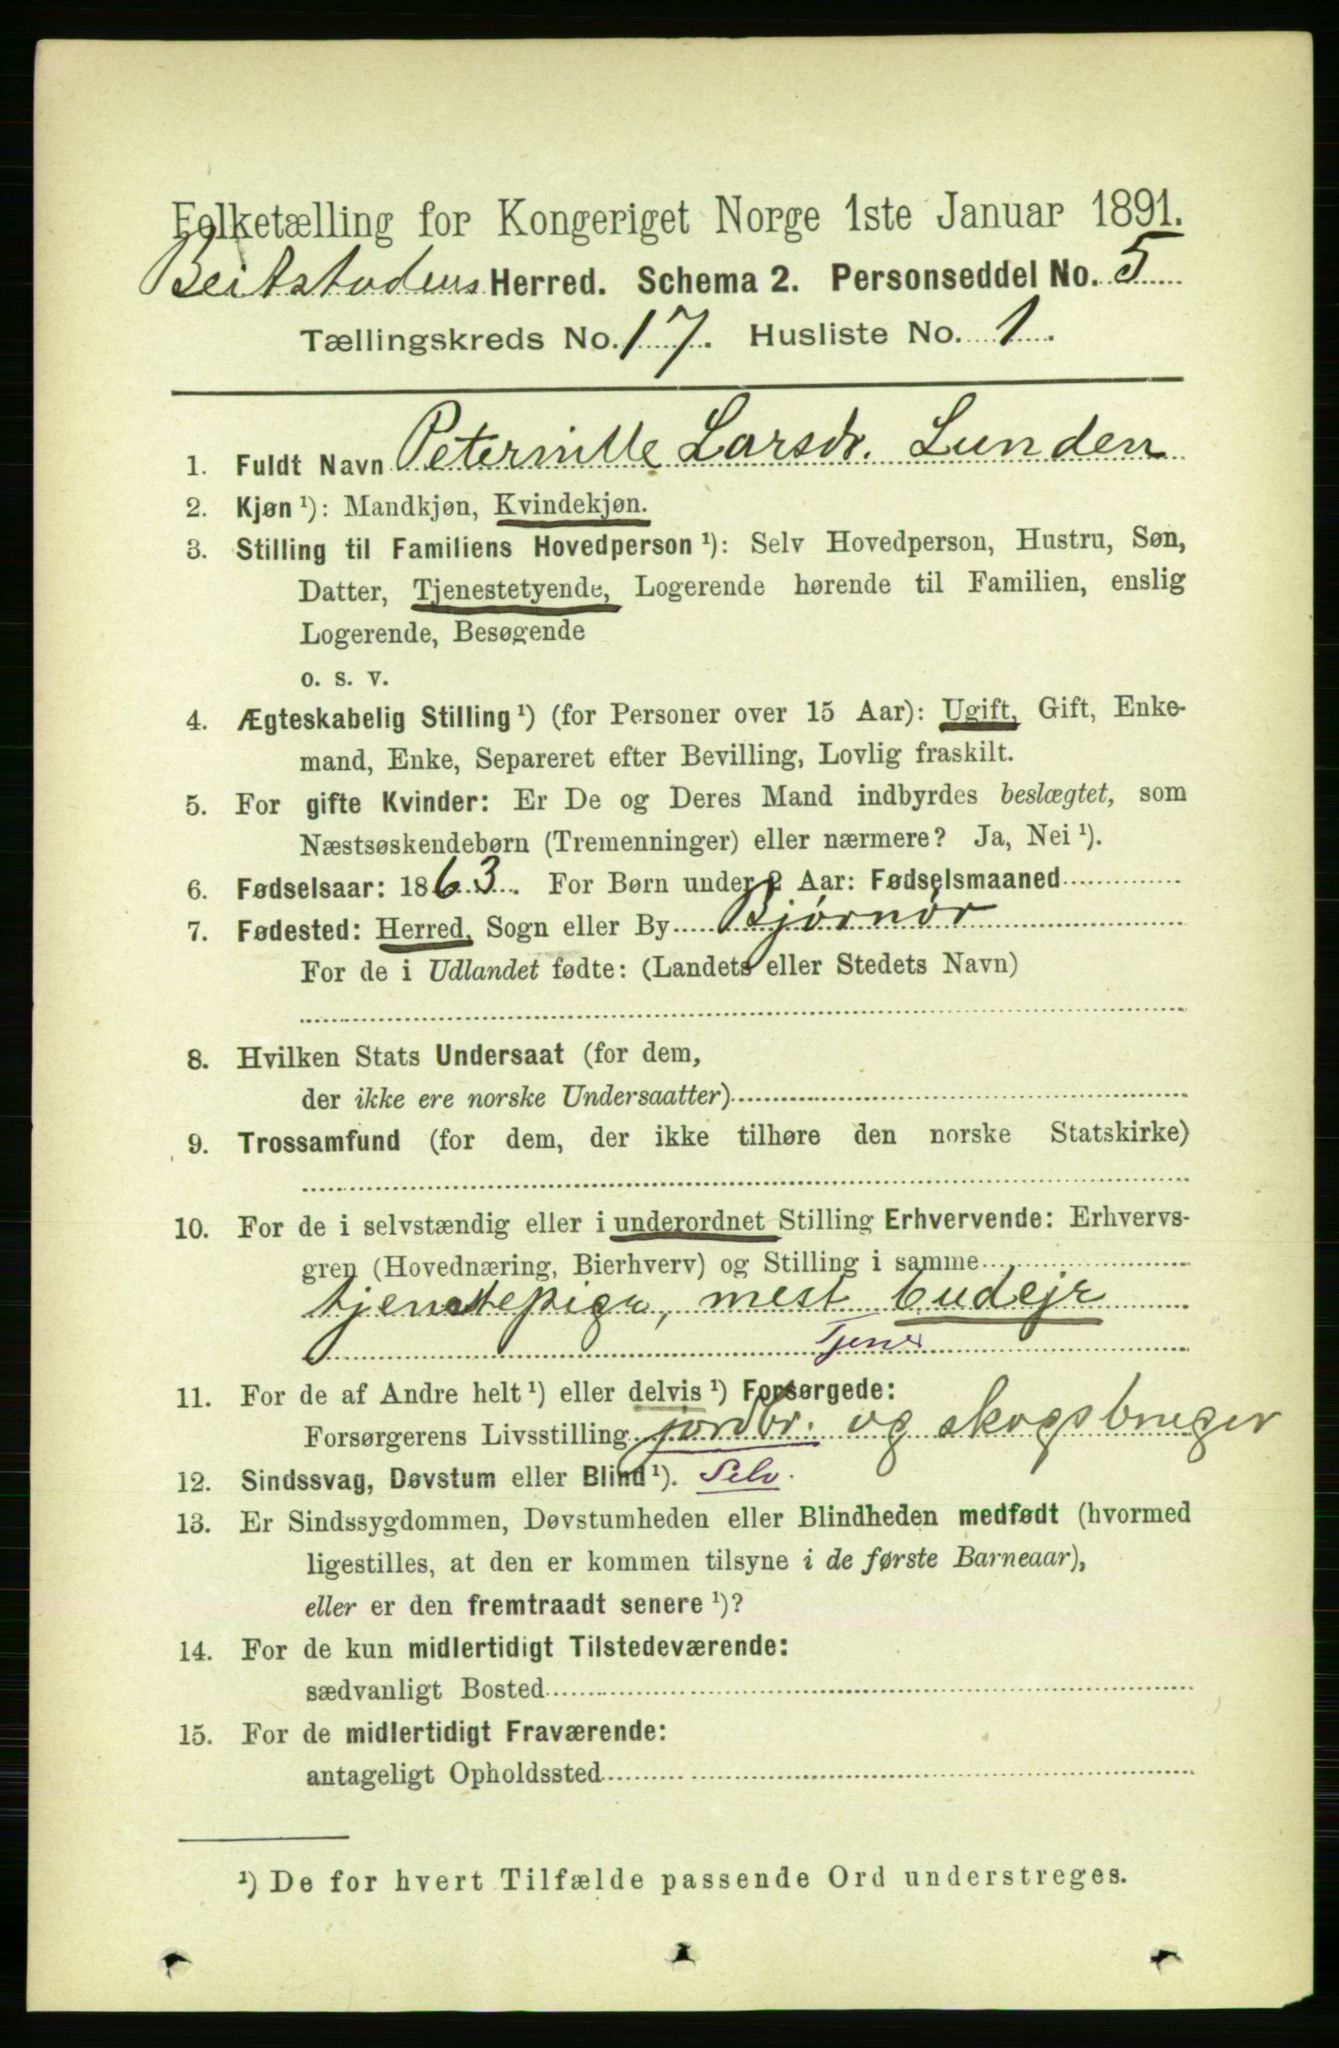 Folketælling for Kongeriget Norge 1ste Januar 1891.
Beitstadens Herred. Schema 2. Personseddel No. 5
Tællingskreds No. 17. Husliste No. 1.
1. Fuldt Navn Peternille Larsdr. Lunden
2. Kjøn ¹): Mandkjøn, Kvindekjøn.
3. Stilling til Familiens Hovedperson ¹): Selv Hovedperson, Hustru, Søn,
Datter, Tjenestetyende, Logerende hørende til Familien, enslig
Logerende, Besøgende
o. s. v.
4. Ægteskabelig Stilling ¹) (for Personer over 15 Aar): Ugift, Gift, Enke-
mand, Enke, Separeret efter Bevilling, Lovlig fraskilt.
5. For gifte Kvinder: Er De og Deres Mand indbyrdes beslægtet, som
Næstsøskendebørn (Tremenninger) eller nærmere? Ja, Nei ¹).
6. Fødselsaar: 1863. For Børn under 2 Aar: Fødselsmaaned
7. Fødested: Herred, Sogn eller By Bjørnør
For de i Udlandet fødte: (Landets eller Stedets Navn)
8. Hvilken Stats Undersaat (for dem,
der ikke ere norske Undersaatter)
9. Trossamfund (for dem, der ikke tilhøre den norske Statskirke)
10. For de i selvstændig eller i underordnet Stilling Erhvervende: Erhvervs-
gren (Hovednæring, Bierhverv) og Stilling i samme
tjenstepige, mest budeje
Tjene
11. For de af Andre helt ¹) eller delvis ¹) Forsørgede:
Forsørgerens Livsstilling jordbr. og skogsbruger
12. Sindssvag, Døvstum eller Blind ¹). Selv.
13. Er Sindssygdommen, Døvstumheden eller Blindheden medfødt (hvormed
ligestilles, at den er kommen tilsyne i de første Barneaar),
eller er den fremtraadt senere ¹)?
14. For de kun midlertidigt Tilstedeværende:
sædvanligt Bosted
15. For de midlertidigt Fraværende:
antageligt Opholdssted
¹) De for hvert Tilfælde passende Ord understreges.